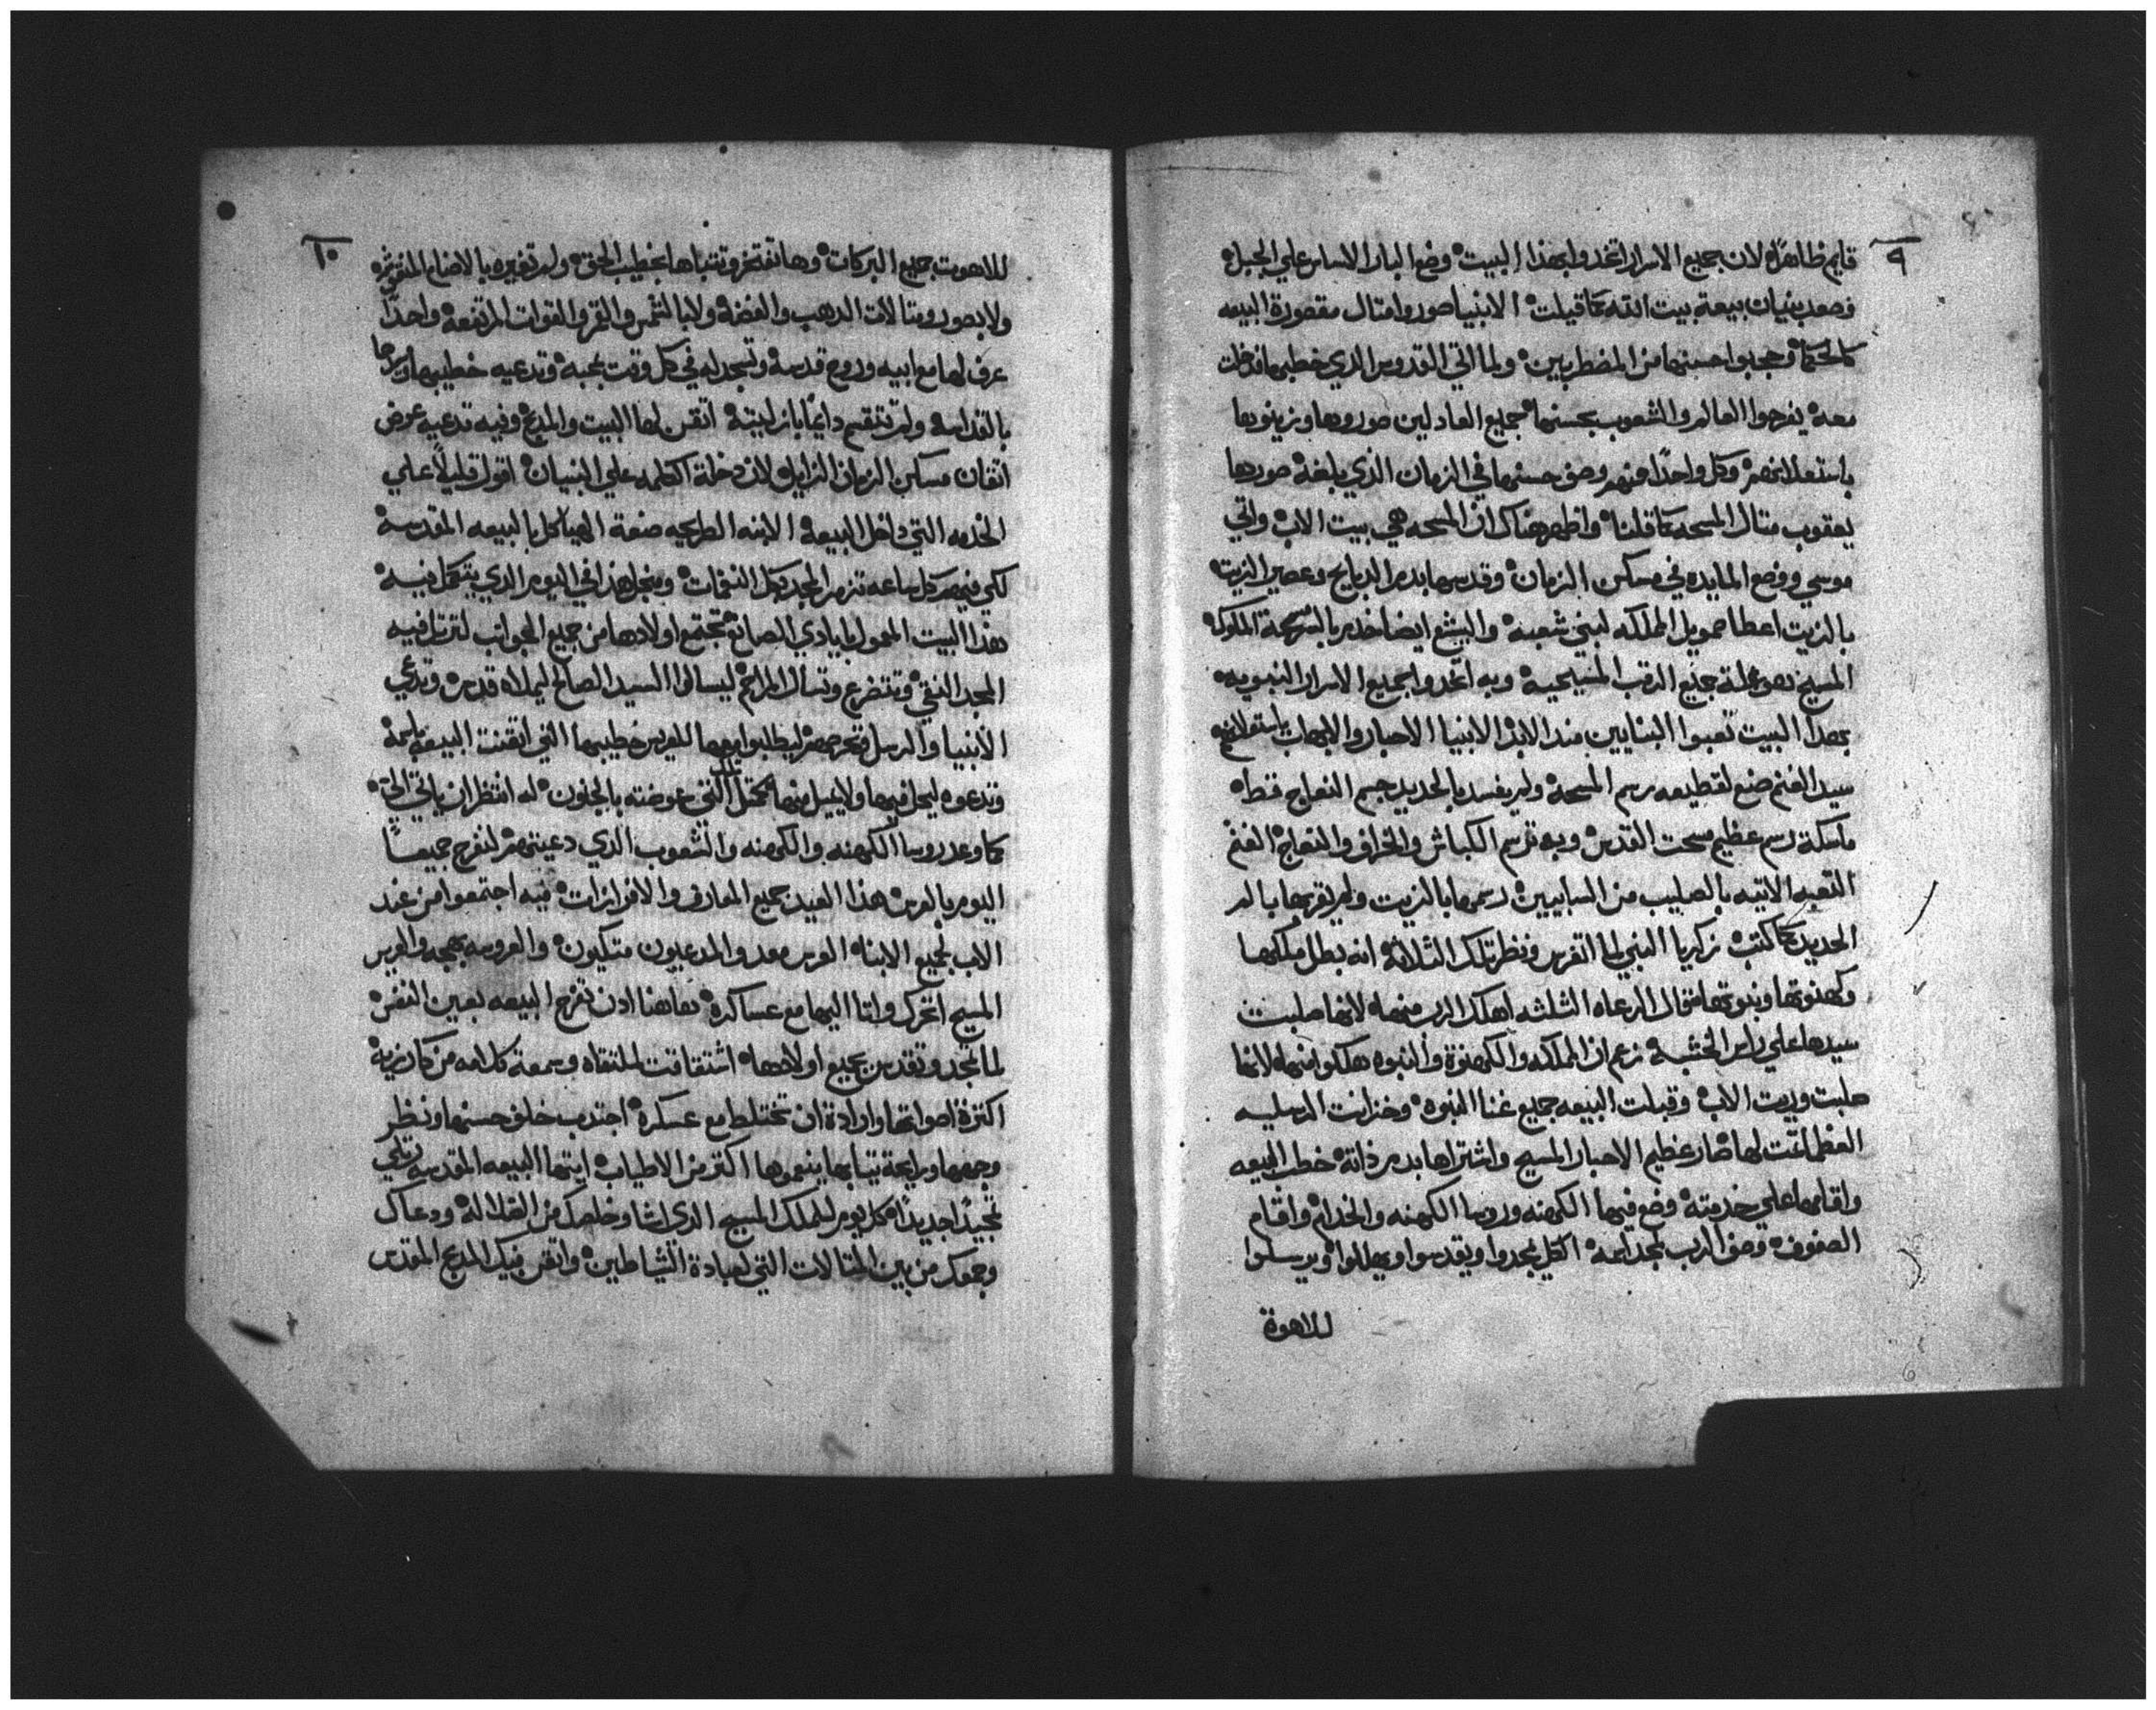 ٩
قايم ظاهرًا لان جميع الاسرار اتخدوا بهذا البيت وضع البار الاساس علي الجبل
وصعد بنيان بيعة بيت الله كما قيلت الانبيا صوروا امتال مقصورة البيعه
كالحكما وحجبوا حسنها من المضطربين ولما اتي القدوس الذي خطبها فدخلت
معه يفرحوا العالم والشعوب بحسنها جميع العادلين صوروها وزينوها
باستعلانهم وكل واحدًا منهم وصف حسنها في الزمان الذي بلغه صورها
يعقوب متال المسحه كما قلنا واظهر هناك ان المسحه هي بيت الاب واتي
موسي ووضع المايده في مسكن الزمان وقدسها بدم الدبايح وعصير الزيت
بالزيت اعطا صمويل المملكه لبني شعبه واليشع ايضا خدير بالمسحة الملوك
المسيح هو علة جميع الرتب المسيحيه وبه اتخدوا جميع الاسرار النبويه
بهذا البيت تعبوا البنايين مند الابد الانبيا الاحبار والابهات باستعلانهم
سيد الغنم صنع لقطيعه رسم المسحة ولم يفسد بالحديد جسم النعاج فقط
ماسكة رسم عظيم مسحت القدس وبه ترسم الكباش والخراف والنعاج الغنم
التعبه الاتيه بالصليب من السابيين رسمها بالزيت ولم يقربها بالم
الحديد كما كتب زكريا النبي لما اتفرس ونظر تلك الثلاثة انه بطل ملكها
وكهنوتها ونبوتها فقال الرعاه الثلثه اهلك الرب منها لانها صلبت
سيدها علي راس الخشبه زعم ان المملكه والكهنوة والنبوه هلكوا منها لانها
صلبت وريت الاب وقبلت البيعه جميع غنا النبوه وخزانت الرسليه
العظما تمت لها صار عظيم الاحبار المسيح واشتراها بدم ذاتة خطب البيعه
واقامها علي خدمته وضع فيها الكهنه وروسا الكهنه والخدام واقام
الصفوف وصف الرب لمجد اسمه لكي يمجدوا ويقدسوا ويهللوا ويرسلوا
للاهوة
١٠
للاهوت جميع البركات وها تفتخر وتتباها بخطيب الحق ولم تغيره بالاصنام
ولا بصور ومتالات الدهب والفضه ولا بالشمس والقمر والقوات المرتفعه واحدًا
عرف لها مع ابيه وروح قدسه وتسجد له في كل وقت بمحبه وتدعيه خطيبها
بالقداسه ولم تنقسم دايمًا بازليتة اتقن لها البيت والمدبح وفيه تدعيه عوض
اتقان مسكن الزمان الزايل لان دخلة الكلمه علي البنيان اقول قليلاً علي
الخدمه التي داخل البيعه الابنه الطريحه صنعة الهياكل بالبيعه المقدسه
لكي فيهم كل ساعه تزمر المجد بكل النغمات ومنجل هذا في اليوم الدي يتكمل فيه
هذا البيت المعمول بايادي الصانع تجتمع اولادها من جميع الجوانب لترتل فيه
المجد النقي وتتضرع وتسال المراحم ليسالوا السيد الصالح ليملاه قدسه وتدعي
الانبيا والرسل وتحرصهم ليطلبوا معها للعريس خطيبها التي اتقنت البيعه باسمه
وتدعوه ليحل فيها ولا يميل منها كمتل تلك التي عوضته بالجنون له انتظر ان ياتي الي
كما وعد روسا الكهنه والكهنه والشعوب الدي دعيتهم لنفرح جميعًا
اليوم بالعرس هذا العيد جميع المعارف والافرازات فيه اجتمعوا من عند
الاب لجميع الابنا العرس معد والمدعيون متكيون والعروسه بهجه والعريس
المسيح اتحرك واتا اليها مع عساكره هاهنا ادن تفرح البيعه بعين النفس
لما تمجد وتقدس بجميع اولادها اشتقاقت لملتقاه وسمعة كلامه من كاروزيه
اكترة اصواتها وارادة ان تختلط مع عسكره اجتدب خلف حسنها ونظر
وجهها وبرايحة تيابها ينعموها اكتر من الاطياب ايتها البيعه المقدسه رتلي
تمجيدًا جديدًا كل يوم للملك المسيح الدي انشا وخلصك من الضلاله ودعاك
وجمعك من بين المتالات التي لعبادة الشياطين واتقن فيك المدبح المقدس